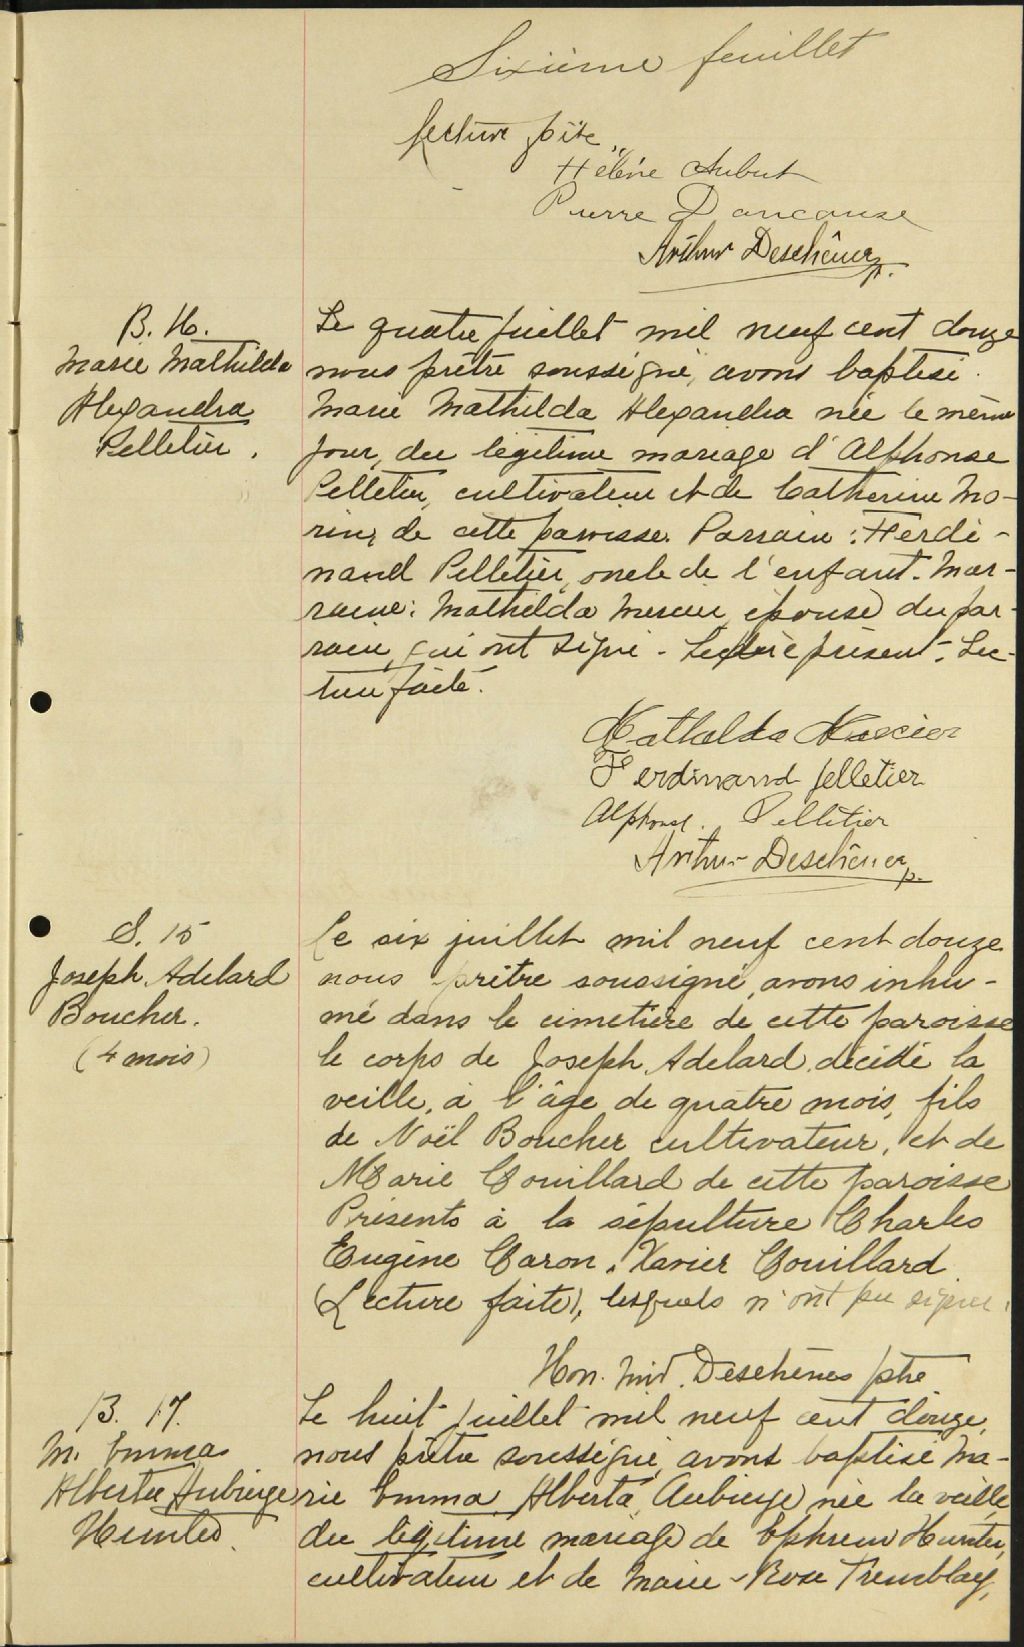 Sixième feuillet
Lecture faite.
Hélène Aubut
Pierre Dancause
Arthur Deschênes p.
B. 16.
Marie Mathilda
Alexandra
Pelletier.
Le quatre juillet mil neuf cent douze
nous prêtre soussigné, avons baptisé
Marie Mathilda Alexandra née le même
jour, du légitime mariage d'Alphonse
Pelletier, cultivateur et de Catherine Mo-
rin, de cette paroisse. Parrain: Ferdi-
nand Pelletier, oncle de l'enfant. Mar-
raine: Mathilda Mercier épouse du par-
rain, qui ont signé - Le père présent. Lec-
ture faite.
Mathilda Mercier
Ferdinand pelletier
Alphonse Pelletier
Arthur Deschênes p.
S. 15
Joseph Adelard
Boucher.
(4 mois)
Le six juillet mil neuf cent douze
nous prêtre soussigné, avons inhu-
mé dans le cimetière de cette paroisse
le corps de Joseph Adelard, décédé la
veille, à l'âge de quatre mois, fils
de Noël Boucher cultivateur, et de
Marie Couillard de cette paroisse
Présents à la sépulture Charles
Eugène Caron, Xavier Couillard
(Lecture faite), lesquels n'ont pu signer.
Hon. Deschênes ptre
B. 17.
M. Emma
Alberta Aubierge
Hunter
Le huit juillet mil neuf cent douze,
nous prêtre soussigné, avons baptisé Ma-
rie Emma Alberta Aubierge née la veille,
du légitime mariage de Ephrem Hunter,
cultivateur et de Marie-Rose Tremblay,